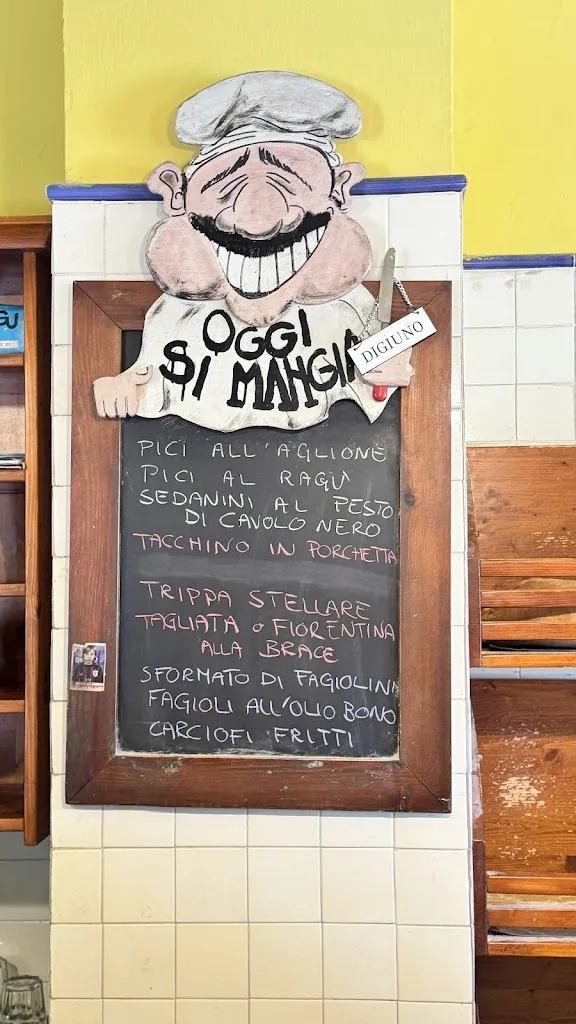 OGGI
SI MANGIA
DIGIUNO
PICI ALL'AGLIONE
PICI AL RAGU'
SEDANINI AL PESTO
DI CAVOLO NERO
TACCHINO IN PORCHETTA
TRIPPA STELLARE
TAGLIATA o FIORENTINA
ALLA BRACE
SFORMATO DI FAGIOLINI
FAGIOLI ALL'OLIO BONO
CARCIOFI FRITTI